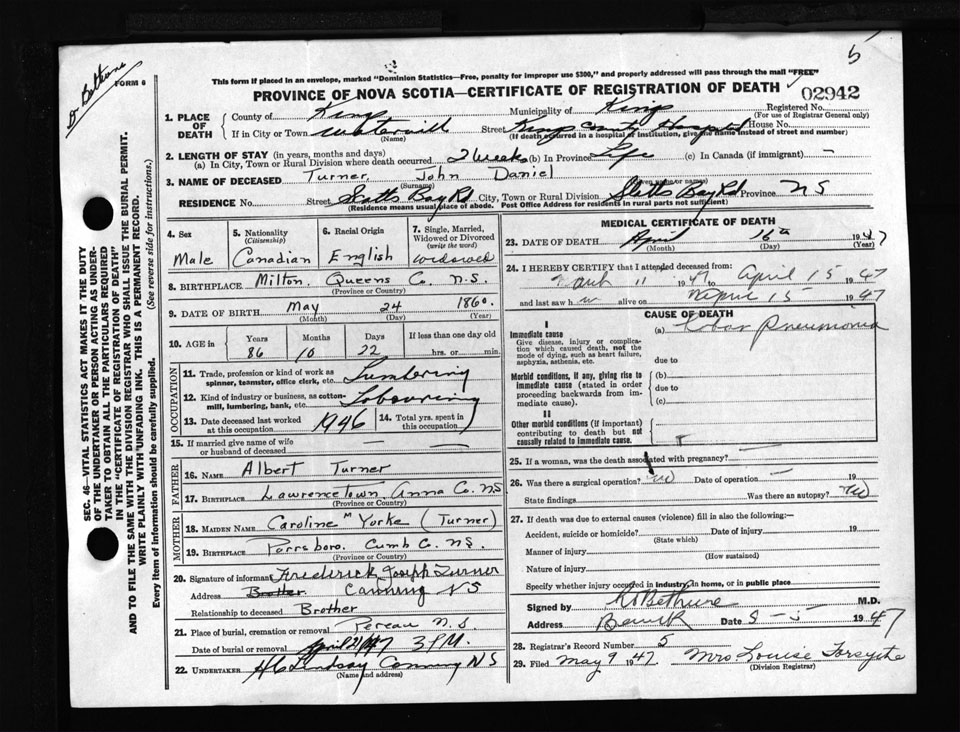 5
Dr Bethune
FORM 6
This form if placed in an envelope, marked "Dominion Statistics—Free, penalty for improper use $300," and properly addressed will pass through the mail "FREE"
PROVINCE OF NOVA SCOTIA—CERTIFICATE OF REGISTRATION OF DEATH 02942
SEC. 46—VITAL STATISTICS ACT MAKES IT THE DUTY
OF THE UNDERTAKER OR PERSON ACTING AS UNDER-
TAKER TO OBTAIN ALL THE PARTICULARS REQUIRED
IN THE "CERTIFICATE OF REGISTRATION OF DEATH"
AND TO FILE THE SAME WITH THE DIVISION REGISTRAR WHO SHALL ISSUE THE BURIAL PERMIT.
WRITE PLAINLY WITH UNFADING INK. THIS IS A PERMANENT RECORD.
Every item of Information should be carefully supplied. (See reverse side for instructions.)
1. PLACE OF DEATH
County of Kings Municipality of Kings Registered No.
(For use of Registrar General only)
If in City or Town Waterville Street Kings County Hospital House No.
(Name) (If death occurred in a hospital of institution, give the name instead of street and number)
2. LENGTH OF STAY (in years, months and days)
(a) In City, Town or Rural Division where death occurred 2 weeks (b) In Province Life (c) In Canada (if immigrant) —
3. NAME OF DECEASED Turner, John Daniel
(Surname)
RESIDENCE No. Street Scotts Bay Rd City, Town or Rural Division Scotts Bay Rd Province N S
(Residence means usual place of abode. Post Office Address for residents in rural parts not sufficient)
4. Sex
Male
5. Nationality
(Citizenship)
Canadian
6. Racial Origin
English
7. Single, Married,
Widowed or Divorced
(write the word)
widowed
8. BIRTHPLACE Milton, Queens Co. N.S.
(Province or Country)
9. DATE OF BIRTH May 24 1860.
(Month) (Day) (Year)
10. AGE in Years Months Days If less than one day old
86 10 22 hrs. or min.
OCCUPATION
11. Trade, profession or kind of work as
spinner, teamster, office clerk, etc. Lumbering
12. Kind of industry or business, as cotton-
mill, lumbering, bank, etc. Labouring
13. Date deceased last worked
at this occupation 1946
14. Total yrs. spent in
this occupation
15. If married give name of wife
or husband of deceased
FATHER
16. NAME Albert Turner
17. BIRTHPLACE Lawrencetown, Anna Co. N S
(Province or Country)
MOTHER
18. MAIDEN NAME Caroline M Yorke (Turner)
19. BIRTHPLACE Parrsboro, Cumb Co. N.S.
(Province or Country)
20. Signature of informant Frederick Joseph Turner
Address Brother Canning N S
Relationship to deceased Brother
21. Place of burial, cremation or removal Pereau N.S
Date of burial or removal April 21/47 3 P.M.
22. UNDERTAKER H C Lindsay Canning N S
(Name and address)
MEDICAL CERTIFICATE OF DEATH
23. DATE OF DEATH April 16th 1947
(Month) (Day) (Year)
24. I HEREBY CERTIFY that I attended deceased from:
March 11 1947 to April 15 1947
and last saw h alive on April 15 1947
CAUSE OF DEATH
I
Immediate cause (a) Lobar pneumonia
Give disease, injury or complica-
tion which caused death, not the
mode of dying, such as heart failure,
asphyxia, asthenia, etc. due to
Morbid conditions, if any, giving rise to (b)
immediate cause (stated in order due to
proceeding backwards from im-
mediate cause). (c)
II
Other morbid conditions (if important)
contributing to death but not
causally related to immediate cause.
25. If a woman, was the death associated with pregnancy? —
26. Was there a surgical operation? no Date of operation — 19
State findings Was there an autopsy? no
27. If death was due to external causes (violence) fill in also the following:—
Accident, suicide or homicide? Date of injury 19
(State which)
Manner of injury
(How sustained)
Nature of injury
Specify whether injury occurred in industry, in home, or in public place
Signed by R. Bethune M.D.
Address Berwick Date 5-5 1947
28. Registrar's Record Number 5
29. Filed May 9 1947 Mrs Louise Forsythe
(Division Registrar)